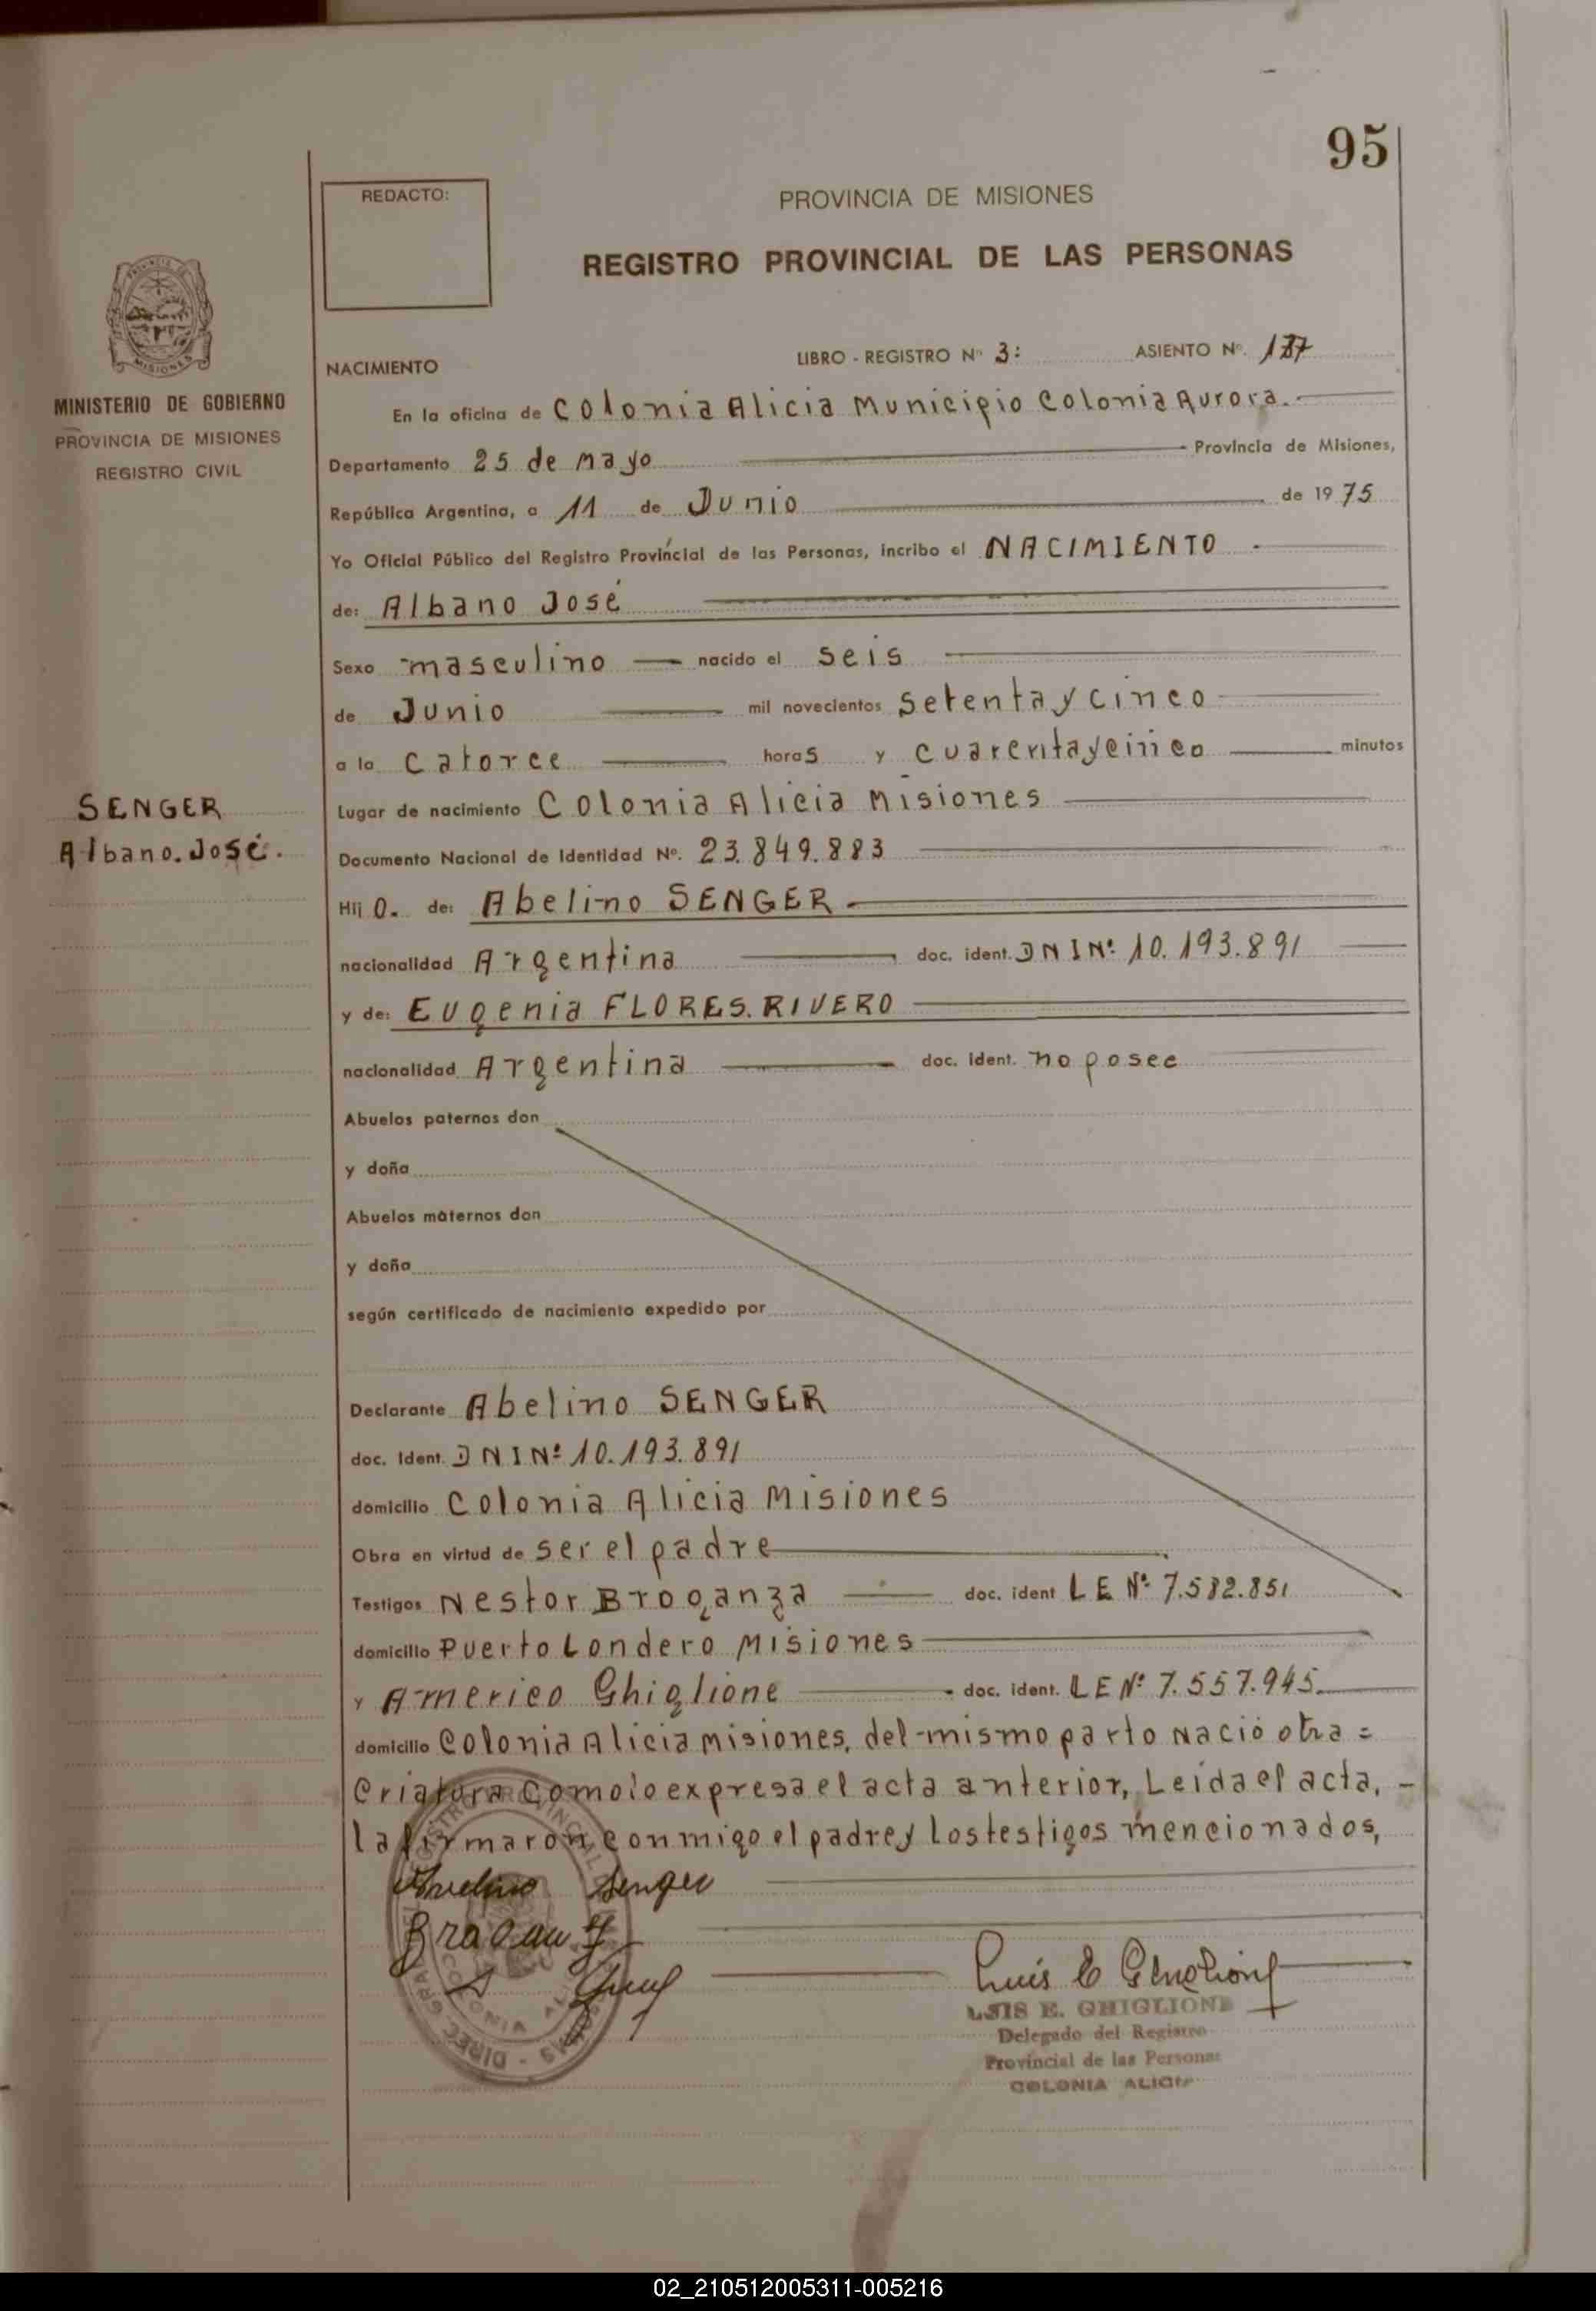 95
REDACTO:
PROVINCIA DE MISIONES
REGISTRO PROVINCIAL DE LAS PERSONAS
MISIONES
MINISTERIO DE GOBIERNO
PROVINCIA DE MISIONES
REGISTRO CIVIL
NACIMIENTO LIBRO - REGISTRO Nº 3: ASIENTO Nº.
En la oficina de Colonia Alicia Municipio Colonia Aurora.
Departamento 25 de Mayo Provincia de Misiones,
República Argentina, a 11 de Junio de 1975
Yo Oficial Público del Registro Provincial de las Personas, incribo el NACIMIENTO
de: Albano José
Sexo masculino nacido el seis
de Junio mil novecientos setenta y cinco
a la catorce horas y cuarenta y cinco minutos
SENGER
Albano. José.
Lugar de nacimiento Colonia Alicia Misiones
Documento Nacional de Identidad Nº. 23.849.883
Hijo. de: Abelino SENGER.
nacionalidad Argentina doc. ident. DNI Nº 10.193.891
y de: Eugenia FLORES. RIVERO
nacionalidad Argentina doc. ident. no posee
Abuelos paternos don
y doña
Abuelos maternos don
y doña
según certificado de nacimiento expedido por
Declarante Abelino SENGER
doc. Ident. DNI Nº 10.193.891
domicilio Colonia Alicia Misiones
Obra en virtud de ser el padre
Testigos Nestor Broganza doc. ident LE Nº 7.582.851
domicilio Puerto Londero Misiones
y Americo Ghiglione doc. ident. LE Nº 7.557.945.
domicilio Colonia Alicia Misiones, del mismo parto Nació otra =
Criatura como lo expresa el acta anterior, Leida el acta, -
la firmaron conmigo el padre y los testigos mencionados,
Avelino Senger
Luis E Ghiglione
LUIS E. GHIGLIONE
Delegado del Registro
Provincial de las Personas
COLONIA ALICIA
02_210512005311-005216